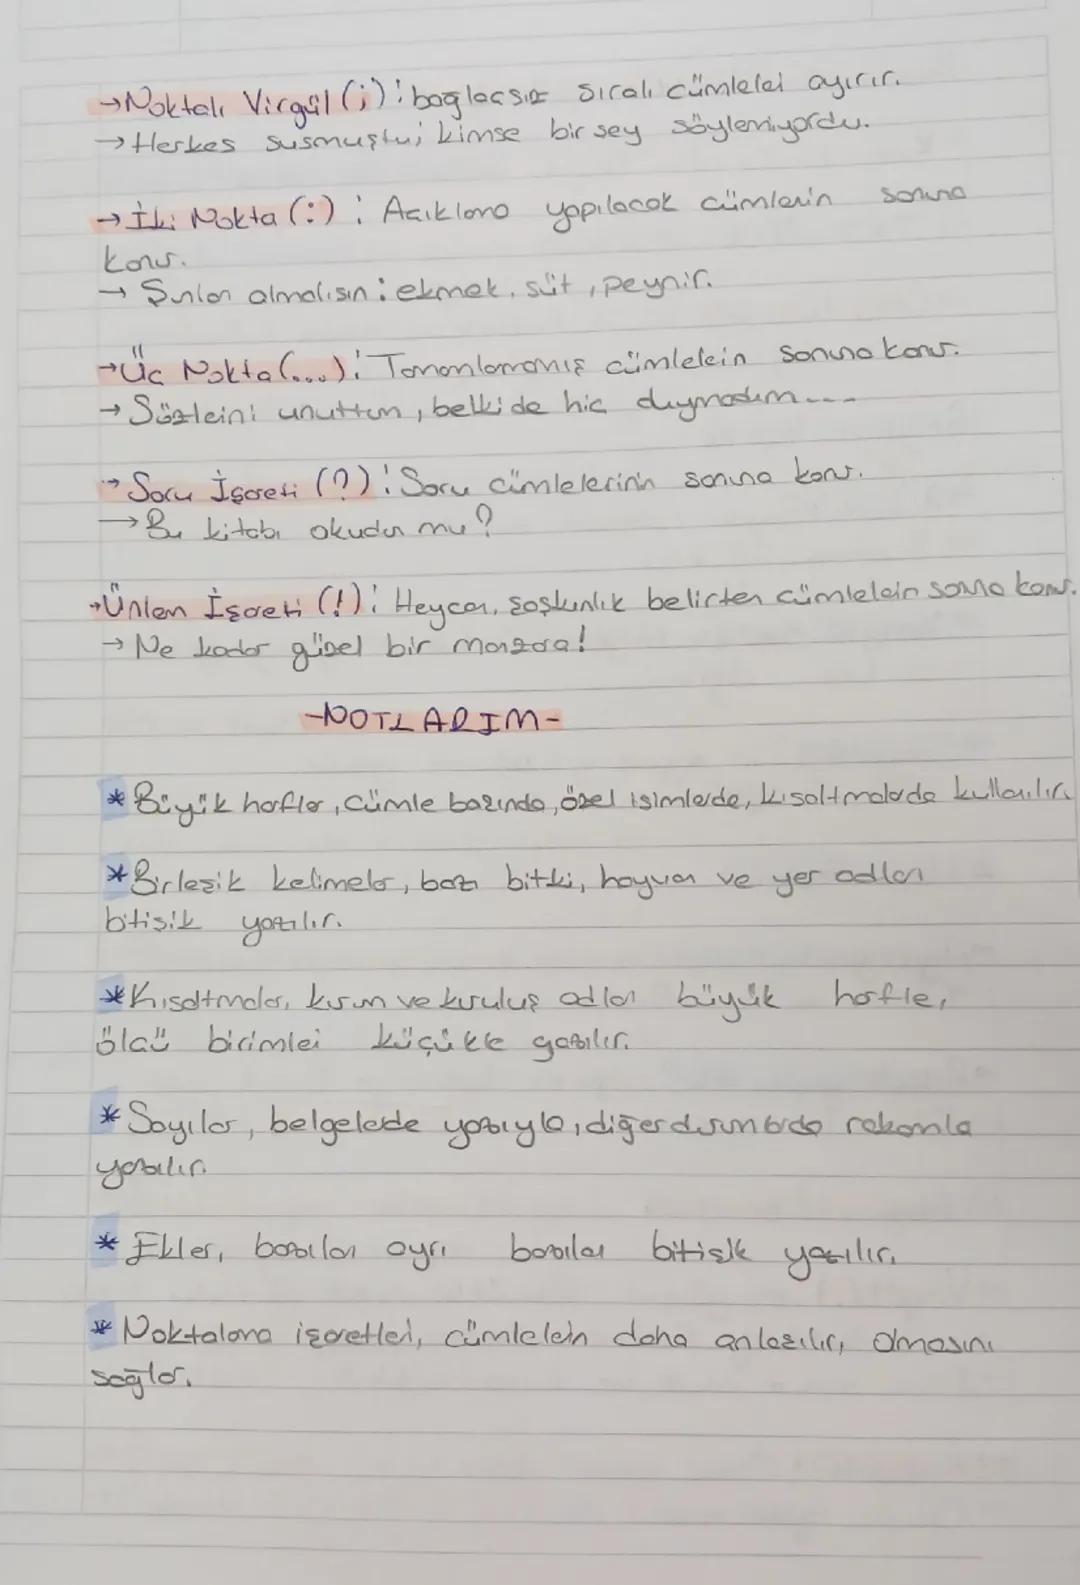 →Noktalı Virgül (;): bağlaçsız sıralı cümleleri ayırır.
→Herkes susmuştu; kimse bir şey söylemiyordu.
→İki Nokta (:): Açıklama yapılacak cümlenin sonuna
konur.
→ Şunları almalısın: ekmek, süt, peynir.
→Üç Nokta(...): Tamamlanmamış cümlelerin sonuna konur.
→Sözlerini unuttum, belki de hiç duymadım....
→Soru İşareti (?): Soru cümlelerinin sonuna konur.
→Bu kitabı okudun mu?
→Ünlem İşareti (!): Heycan, şaşkınlık belirten cümlelerin sonuna konur.
→ Ne kadar güzel bir manzara!
-NOTLARIM-
* Büyük harfler, cümle başında, özel isimlerde, kısaltmalarda kullanılır.
*Birleşik kelimeler, bazı bitki, hayvan ve yer adları
bitişik yazılır.
*Kısaltmalar, kurum ve kuruluş adları büyük harfle,
ölçü birimleri küçükle yazılır.
* Sayılar, belgelerde yazıyla, diğer durumlarda rakamla
yazılır.
* Ekler, bazıları ayrı bazıları bitişik yazılır.
* Noktalama işaretleri, cümlelerin daha anlaşılır, olmasını
sağlar.